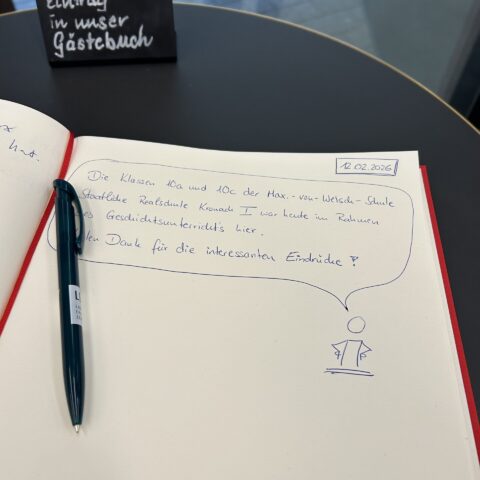 Eintrag
in unser
Gästebuch
hat.
12.02.2026
Die Klassen 10a und 10c der Max.-von-Welsch-Schule
Staatliche Realschule Kronach I war heute im Rahmen
es Geschichtsunterrichts hier.
len Dank für die interessanten Eindrücke!